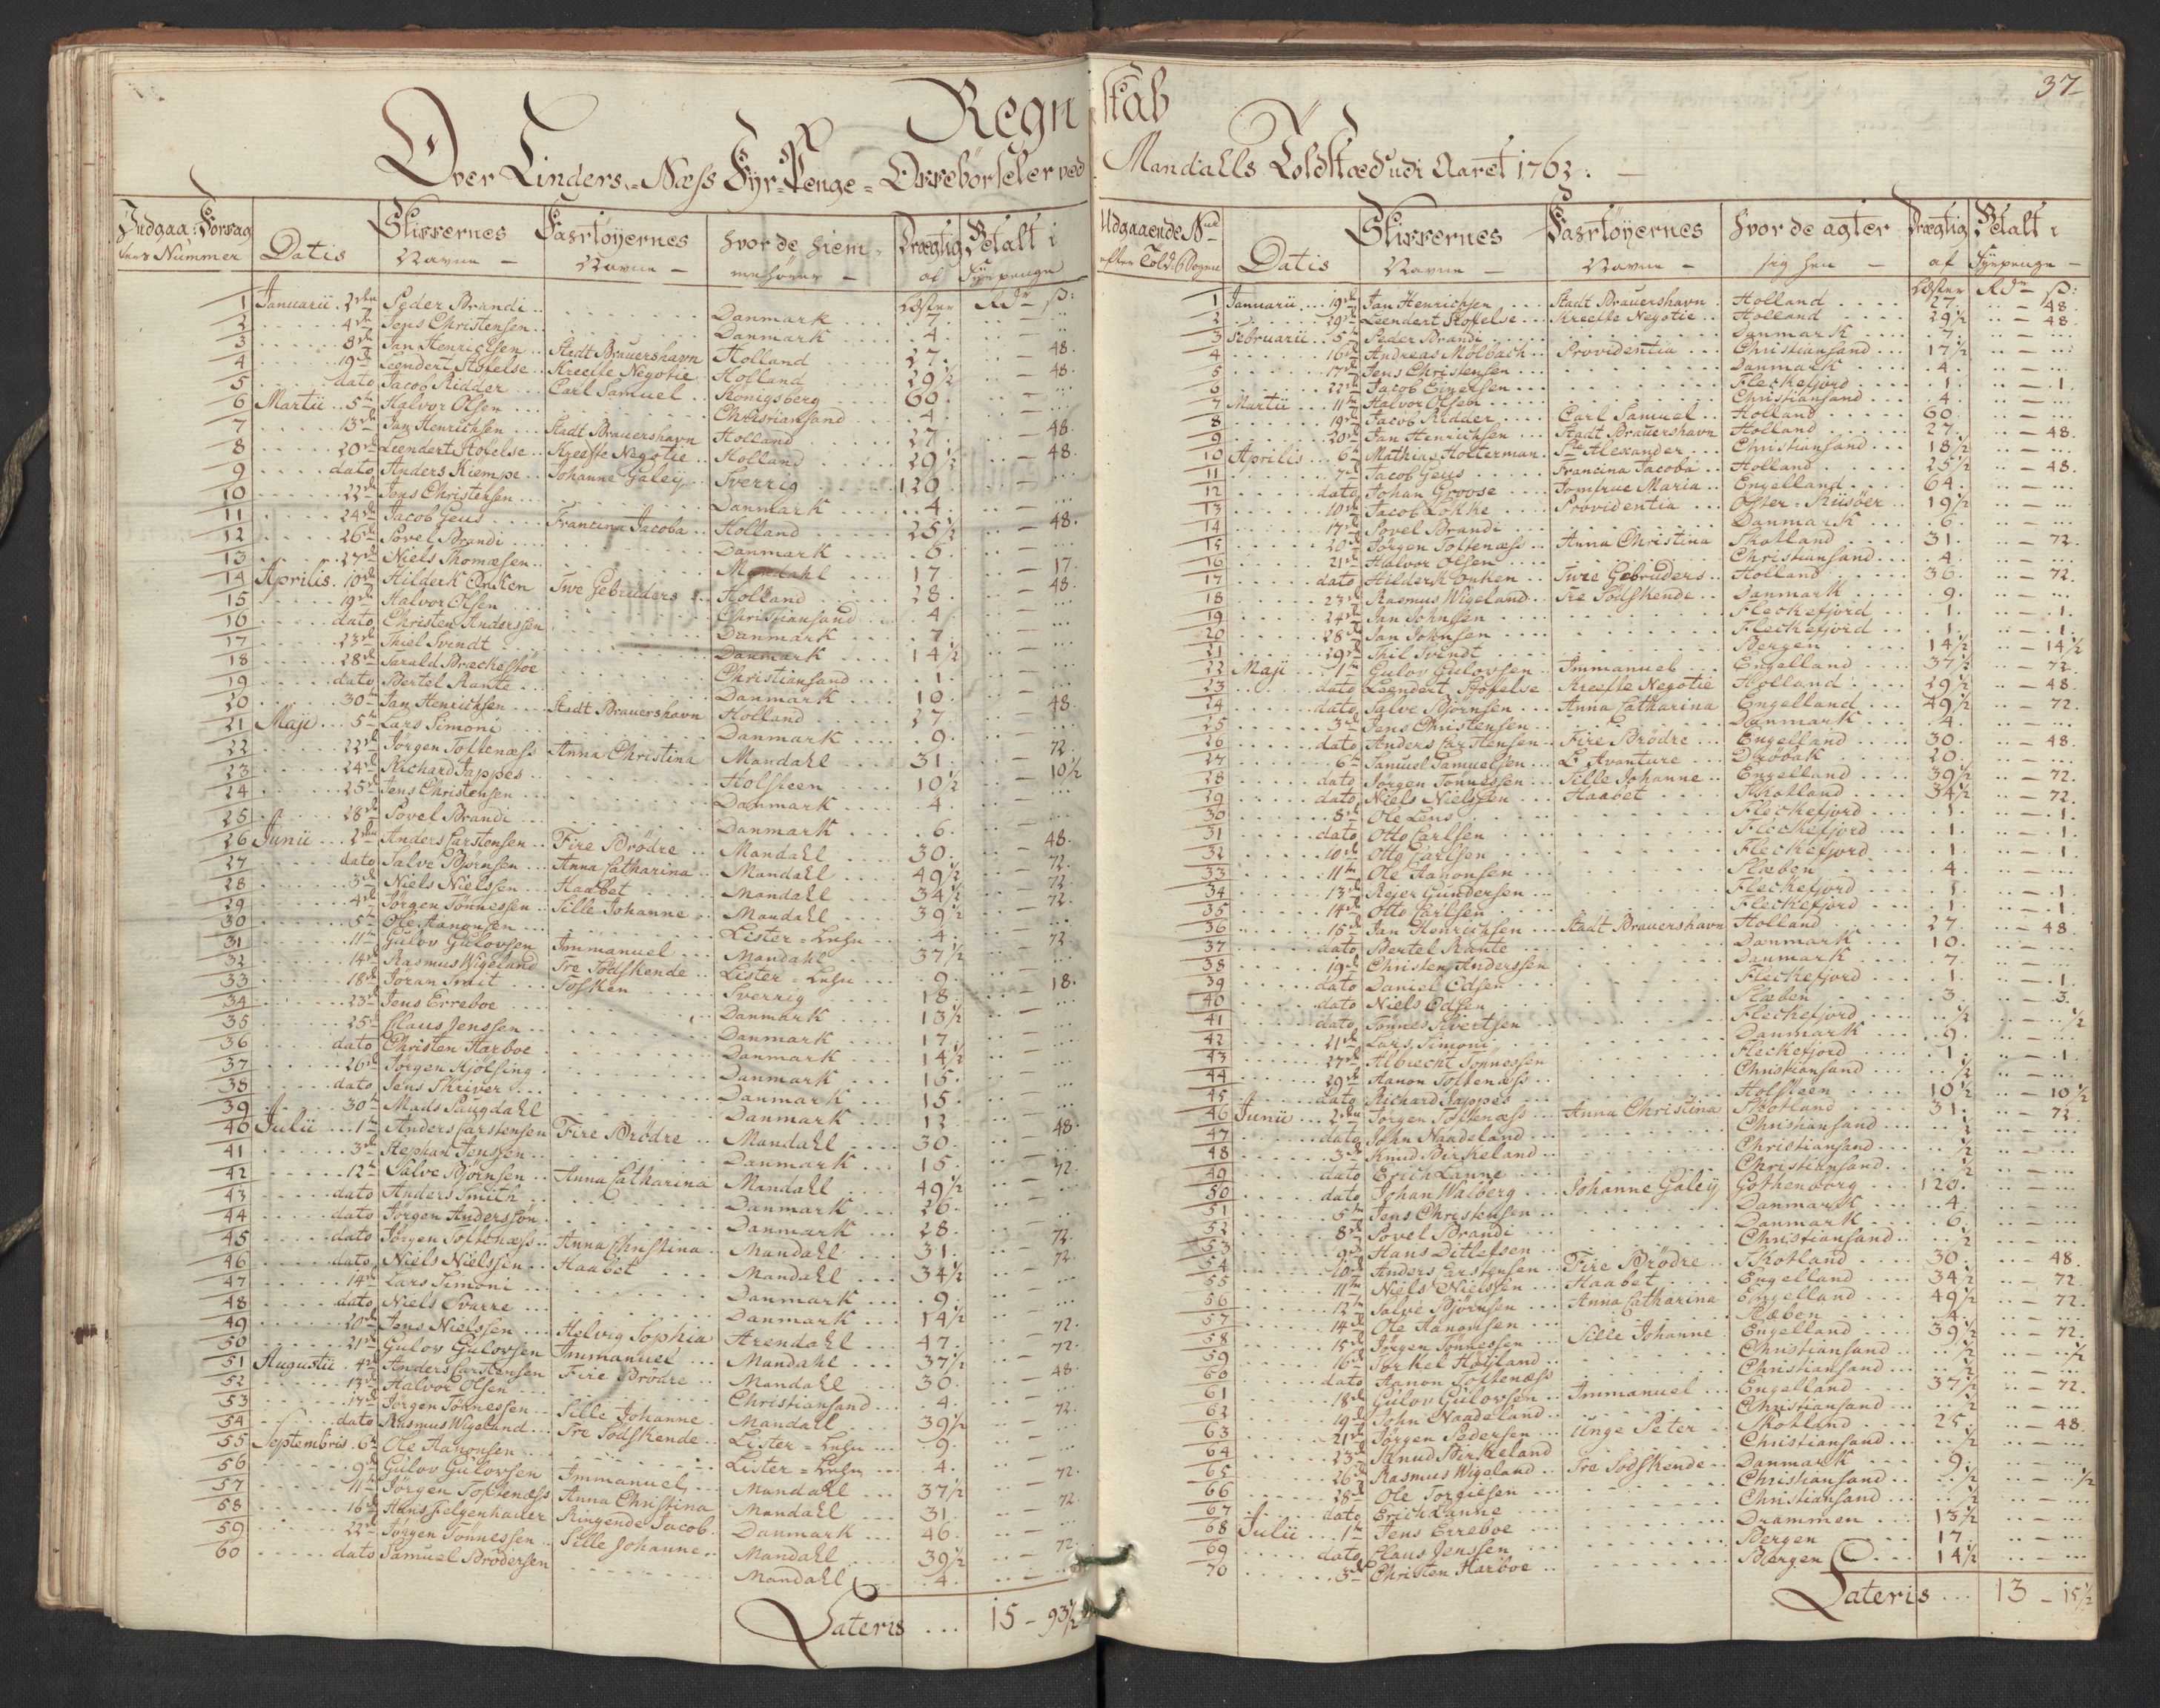 37
Regnskab
Over Linders-Næss Fyr-Penge-Oppebørseler ved Mandalls Toldsted udi Aaret 1763.
Datis Skippernes Navne Fartøyernes Navne Hvor de hiemmehører Drægtig af Læster Betalt i Fyrpenge Rdr ß:
1 Januarii 2den Peder Brandi Danmark 7.
2 4de Jens Christensen Danmark 4.
3 8de Jan Henrichsen Stadt Brauershavn Holland 27. 48.
4 19de Leendert Stofelse Kreefte Negotie Holland 29½ 48.
5 dato Jacob Ridder Carl Samuel Konigsberg 60.
6 Martii 5te Halvor Olsen Christiansand 4.
7 13de Jan Henrichsen Stadt Brauershavn Holland 27. 48.
8 20de Leendert Stofelse Kreefte Negotie Holland 29½ 48.
9 dato Anders Kiempe Johanne Galeÿ Sverrig 120.
10 22de Jens Christensen Danmark 4.
11 24de Jacob Geus Francina Jacoba Holland 25½ 48.
12 26de Povel Brandi Danmark 6.
13 27de Niels Thomæsen Mandahl 17 17.
14 Aprilis 10de Hilderk Onken Twe Gebruders Holland 28. 48.
15 19de Halvor Olsen Christiansand 4.
16 dato Christen Anderssen Danmark 7.
17 23de Thiel Svindt Danmark 14½
18 28de Tarald Bræckestøe Christiansand 1.
19 dato Bertel Rante Danmark 10.
20 30te Jan Henrichsen Stadt Brauershavn Holland 27. 48.
21 Maji 5te Lars Simoni Danmark 9.
22 22de Jørgen Toftenæss Anna Christina Mandahl 31. 72.
23 24de Richard Jappes Holsteen 10½ 10½
24 25de Jens Christensen Danmark 4.
25 28de Povel Brandi Danmark 6.
26 Junii 2den Anders Carstensen Fire Brödre Mandahl 30. 48.
27 dato Salve Bjørnsen Anna Catharina Mandahl 49½ 72.
28 3de Niels Nielssen Haabet Mandahl 34½ 72.
29 4de Jørgen Tønnessen Sille Johanne Mandahl 39½ 72.
30 5te Ole Aanonsen Lister 4.
31 11te Gulov Gulovsen Immanuel Mandahl 37½ 72.
32 14de Rasmus Wigeland Tre Södskende Lister 9.
33 18de Jøran Smit Tosken Sverrig 18 18.
34 23de Jens Erreboe Danmark 13½
35 25de Claus Jenssen Danmark 17.
36 dato Christen Harboe Danmark 14½
37 26de Jørgen Hjølsing Danmark 15.
38 dato Jens Skriver Danmark 15.
39 30te Mads Saugdahl Danmark 12
40 Julii 1te Anders Carstensen Fire Brödre Mandahl 30. 48.
41 3de Stephan Jenssen Danmark 15.
42 12te Salve Bjørnsen Anna Catharina Mandahl 49½ 72.
43 dato Anders Smith Danmark 26.
44 dato Jørgen Anderssøn Danmark 28.
45 dato Jørgen Toftenæss Anna Christina Mandahl 31. 72.
46 dato Niels Nielssen Haabet Mandahl 34½ 72.
47 14de Lars Simoni Danmark 9.
48 dato Niels Svarre Danmark 14½
49 20de Jens Nielssen Helvig Sophia Arendahl 47. 72.
50 21de Gulov Gulovsen Immanuel Mandahl 37½ 72.
51 Augustii 4de Anders Carstensen Fire Brödre Mandahl 30. 48.
52 13de Halvor Olsen Christiansand 4.
53 17de Jørgen Tønnessen Sille Johanne Mandahl 39½ 72.
54 dato Rasmus Wigeland Tre Södskende Lister 9.
55 Septembris 6te Ole Aanonsen Lister 4.
56 9de Gulov Gulovsen Immanuel Mandahl 37½ 72.
57 11te Jørgen Toftenæss Anna Christina Mandahl 31. 72.
58 16de Hans Felgenhauer Ringende Jacob Danmark 46.
59 22de Jørgen Tønnessen Sille Johanne Mandahl 39½ 72.
60 dato Samuel Brodersen Mandahl 4.
Lateris 15 - 93½
Udgaaende Nr. efter Told-Bogen Datis Skippernes Navne Fartøyernes Navne Hvor de agter sig hen Drægtig af Læster Betalt i Fyrpenge Rdr ß:
1 Januarii 19de Jan Henrichsen Stadt Brauershavn Holland 27. 48
2 29de Leendert Stoffelse Kreefte Negotie Holland 29½ 48
3 Februarii 5te Peder Brandi Danmark 7.
4 16de Andreas Mölbach Providentia Christiansand 17½
5 17de Jens Christensen Danmark 4.
6 22de Jacob Einersen Fleckefjord 1. 1.
7 Martii 11te Halvor Olsen Christiansand 4.
8 19de Jacob Ridder Carl Samuel Holland 60.
9 20de Jan Henrichsen Stadt Brauershavn Holland 27. 48.
10 Aprilis 6te Mathias Holterman St Alexander Christiansand 18½
11 7de Jacob Geus Francina Jacoba Holland 25½ 48.
12 dato Johan Groose Jomfrue Maria Engelland 64.
13 10de Jacob Lökke Providentia Oster-Riisöer 19½
14 17de Povel Brandi Danmark 6.
15 20de Jørgen Toftenæss Anna Christina Skotland 31. 72.
16 21de Halvor Olsen Christiansand 4.
17 dato Hilderk Onken Twee Gebruders Holland 36. 72.
18 23de Rasmus Wigeland Tre Södskende Danmark 9.
19 24de Jan Johnssen Fleckefjord 1. 1.
20 28de Jan Johnsen Fleckefjord 1. 1.
21 29de Thil Svindt Bergen 14½ 14½
22 Maji 1te Gulov Gulovsen Immanuel Engelland 37½ 72.
23 dato Leendert Stoffelse Kreefte Negotie Holland 29½ 48.
24 dato Salve Bjørnsen Anna Catharina Engelland 49½ 72.
25 3de Jens Christensen Danmark 4.
26 dato Anders Carstensen Fire Brödre Engelland 30. 48.
27 6te Samuel Samuelsen L'Avanture Dröbak 20.
28 dato Jørgen Tønnessen Sille Johanne Engelland 39½ 72.
29 dato Niels Nielssen Haabet Skotland 34½ 72.
30 8de Ole Lens Fleckefjord 1. 1.
31 dato Otto Carlsen Fleckefjord 1. 1.
32 10de Otto Carlsen Fleckefjord 1. 1.
33 11te Ole Aanonsen Slæben 4.
34 13de Rejer Gundersen Fleckefjord 1. 1.
35 14de Otto Carlsen Fleckefjord 1. 1.
36 15de Jan Henrichsen Stadt Brauershavn Holland 27 48
37 dato Bertel Rante Danmark 10.
38 19de Christen Anderssen Danmark 7.
39 dato Daniel Edsen Fleckefjord 1. 1.
40 dato Niels Edsen Slæben 3. 3.
41 dato Tønnes Sivertsen Fleckefjord ½ ½
42 21de Lars Simoni Danmark 9.
43 27de Albrecht Tønnessen Fleckefjord 1. 1.
44 29de Aanon Toftenæss Christiansand ½
45 dato Richard Jappes Holsteen 10½ 10½
46 Junii 2den Jørgen Toftenæss Anna Christina Skotland 31. 72.
47 dato John Naadeland Christiansand ½
48 3de Knud Birkeland Christiansand ½
49 dato Erich Lanne Christiansand ½
50 dato Johan Walberg Johanne Galeÿ Gothenborg 120.
51 5te Jens Christensen Danmark 4.
52 8de Povel Brandi Danmark 6.
53 9de Hans Ditlefsen Christiansand ½
54 10de Anders Carstensen Fire Brödre Skotland 30. 48.
55 11te Niels Nielssen Haabet Engelland 34½ 72.
56 12te Salve Bjørnsen Anna Catharina Engelland 49½ 72.
57 14de Ole Aanonsen Slæben 4.
58 15de Jørgen Tønnessen Sille Johanne Engelland 39½ 72.
59 16de Torkel Høyland Christiansand ½ ½
60 dato Aanon Toftenæss Christiansand ½
61 18de Gulov Gulovsen Immanuel Engelland 37½ 72.
62 19de John Naadeland Christiansand ½
63 21de Jørgen Pedersen Unge Peter Skotland 25. 48.
64 23de Knud Birkeland Christiansand ½
65 26de Rasmus Wigeland Tre Södskende Danmark 9.
66 28de Ole Torgiesen Christiansand ½ ½
67 dato Erich Lanne Christiansand ½
68 Julii 1te Jens Erreboe Drammen 13½
69 dato Claus Jenssen Bergen 17.
70 3de Christen Harboe Bergen 14½
Lateris 13 - 15½